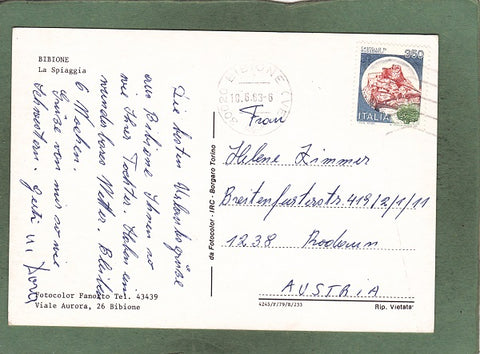 BIBIONE
La Spiaggia
Die besten Urlaubsgrüsse
aus Bibione Ihnen so
wie Ihrer Tochter. Haben ein
wunderbares Wetter. Bleiben
6 Wochen.
Grüße von mir so wie
Schwestern.
Fotocolor Fanotto Tel. 43439
Viale Aurora, 26 Bibione
da Fotocolor - IRC - Borgaro Torino
BIBIONE (VE)
10.6.83-6
350
ITALIA
Frau
Helene Zimmer
Breitenfurterstr. 419/2/1/11
1238 Rodaun
AUSTRIA
4245/F/79/B/233
Rip. Vietata